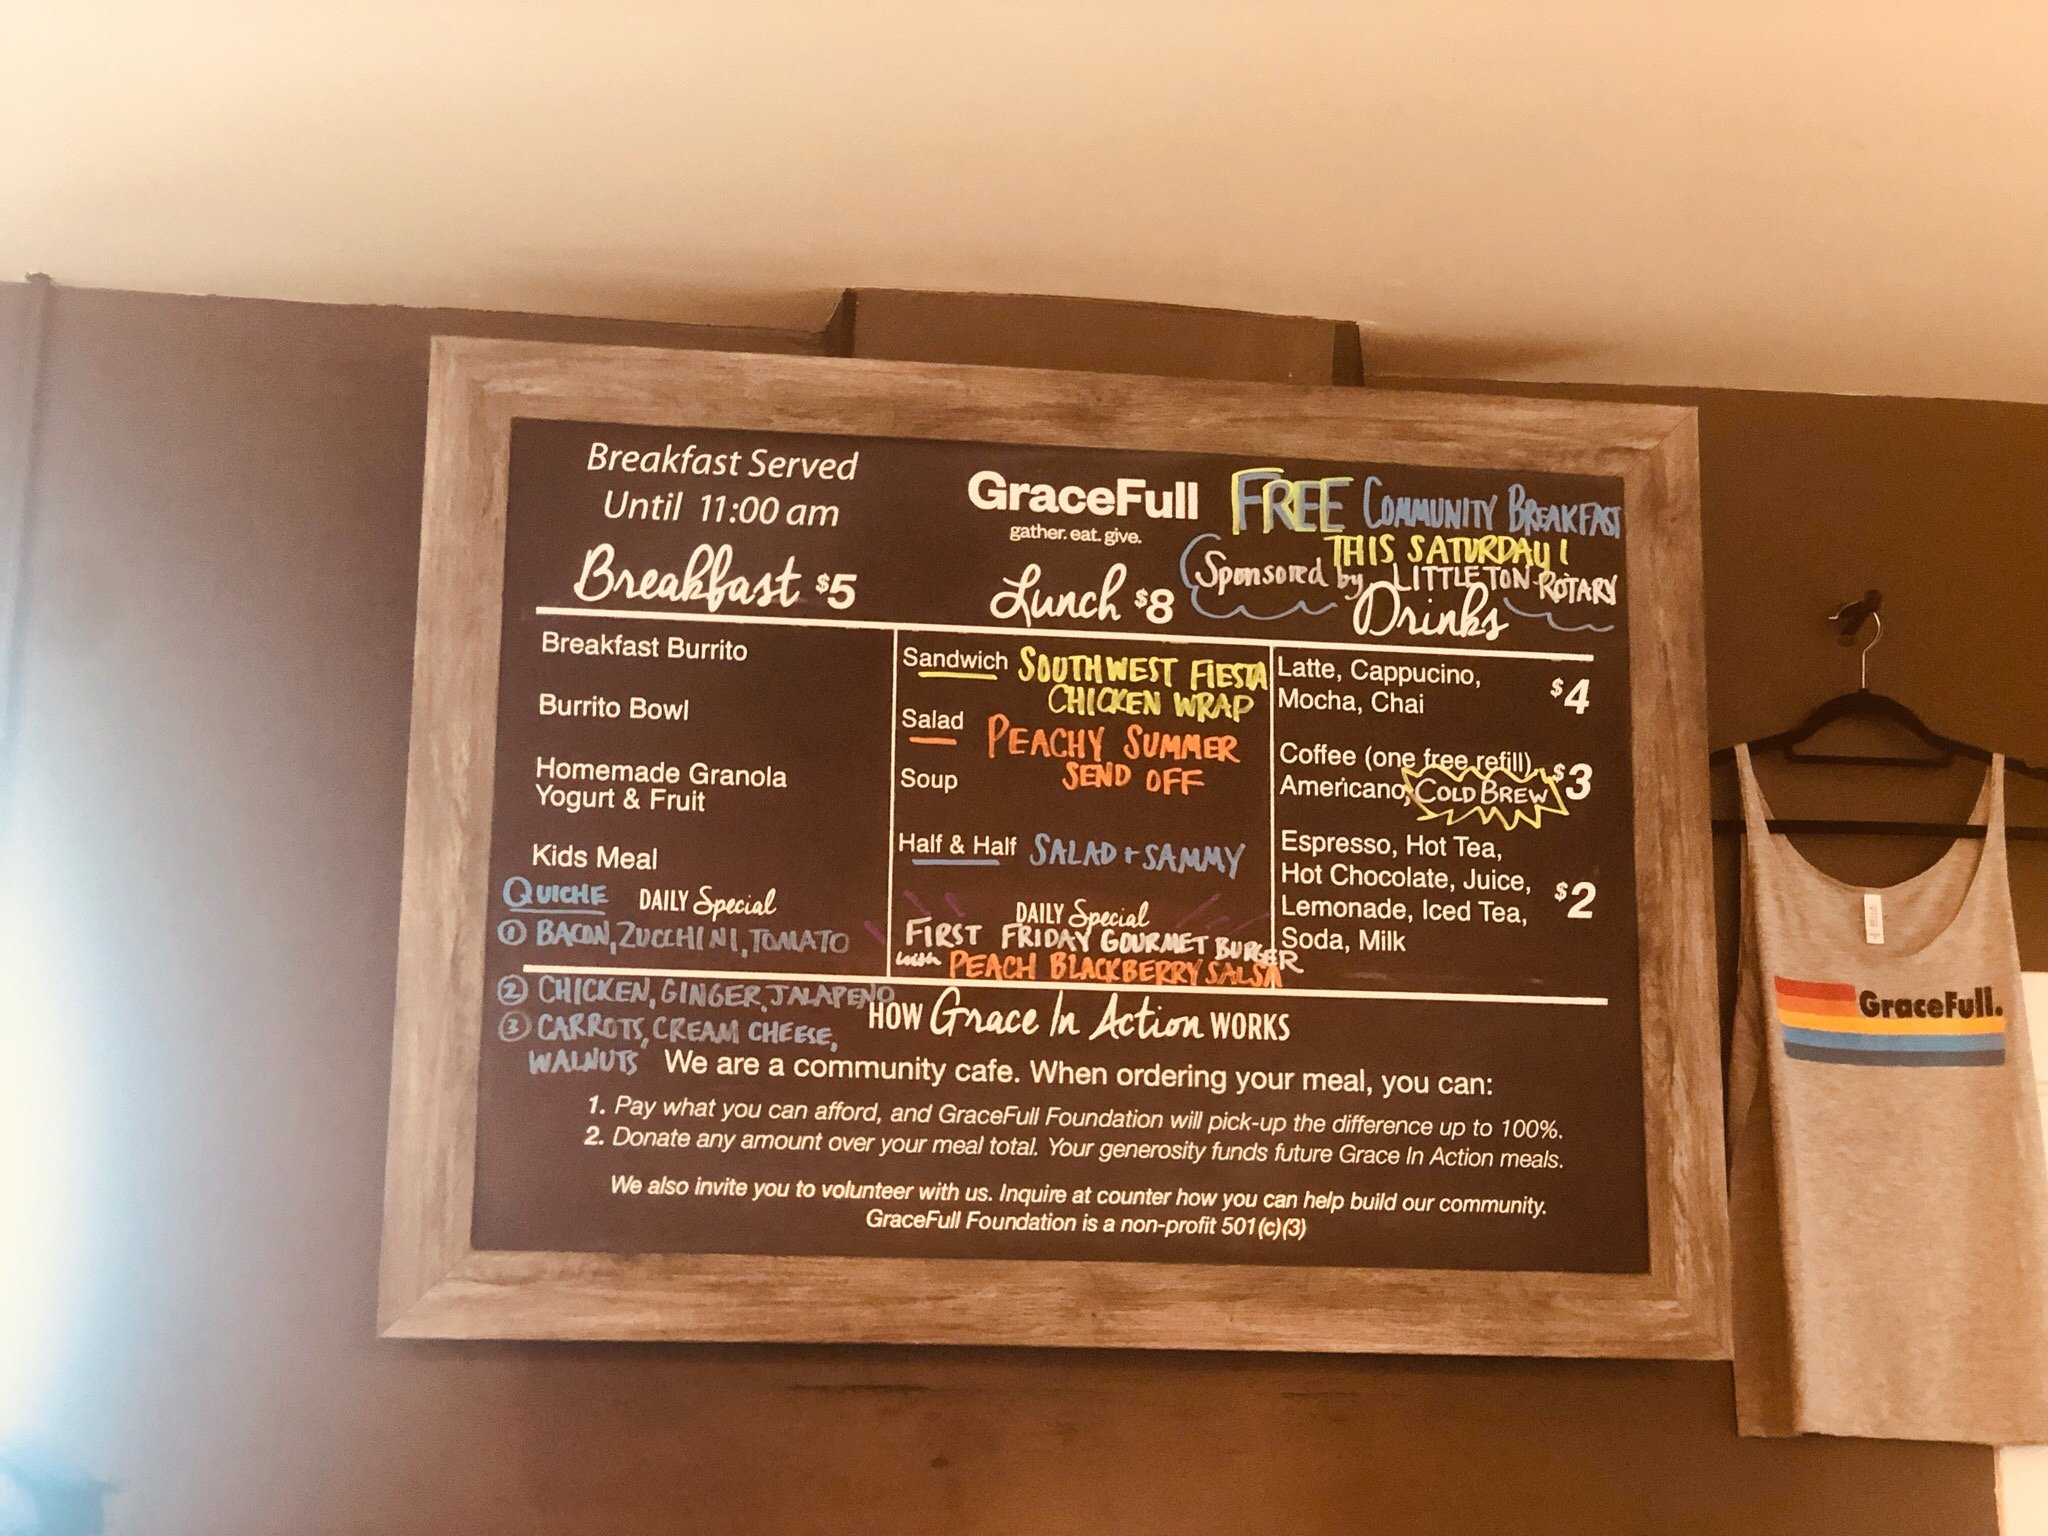 Breakfast Served
Until 11:00 am
Breakfast $5
GraceFull
gather. eat. give.
Lunch $8
FREE COMMUNITY BREAKFAST
THIS SATURDAY!
Sponsored by LITTLETON ROTARY
Drinks
Breakfast Burrito
Burrito Bowl
Homemade Granola
Yogurt & Fruit
Kids Meal
QUICHE DAILY Special
① BACON, ZUCCHINI, TOMATO
② CHICKEN, GINGER, JALAPENO
③ CARROTS, CREAM CHEESE,
WALNUTS
Sandwich SOUTHWEST FIESTA
CHICKEN WRAP
Salad PEACHY SUMMER
SEND OFF
Soup
Half & Half SALAD + SAMMY
DAILY Special
FIRST FRIDAY GOURMET BURGER
with PEACH BLACKBERRY SALSA
Latte, Cappucino,
Mocha, Chai $4
Coffee (one free refill),
Americano, COLD BREW $3
Espresso, Hot Tea,
Hot Chocolate, Juice,
Lemonade, Iced Tea,
Soda, Milk $2
HOW Grace In Action WORKS
We are a community cafe. When ordering your meal, you can:
1. Pay what you can afford, and GraceFull Foundation will pick-up the difference up to 100%.
2. Donate any amount over your meal total. Your generosity funds future Grace In Action meals.
We also invite you to volunteer with us. Inquire at counter how you can help build our community.
GraceFull Foundation is a non-profit 501(c)(3)
GraceFull.